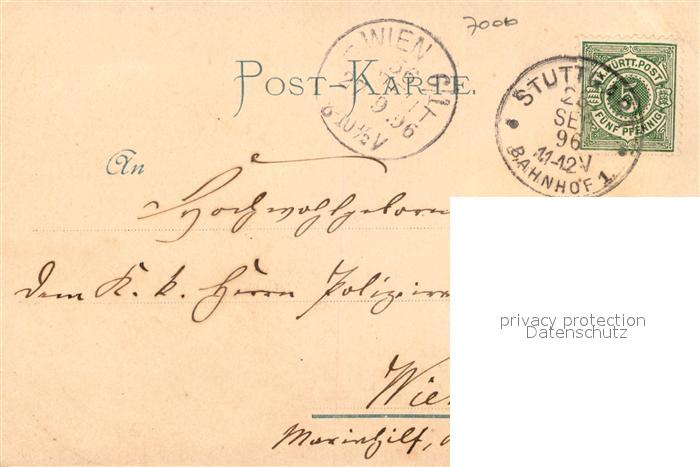 7000
WIEN
56
9.96
8-10½V
K.WÜRTT.POST
5
FÜNF PFENNIG
STUTTG
SEP
96
11-12V
BAHNHOF 1.
POST-KARTE.
An
Hochwohlgeborn
dem K. k. Herrn Polizeira
privacy protection
Datenschutz
Wien
Mariahilf,